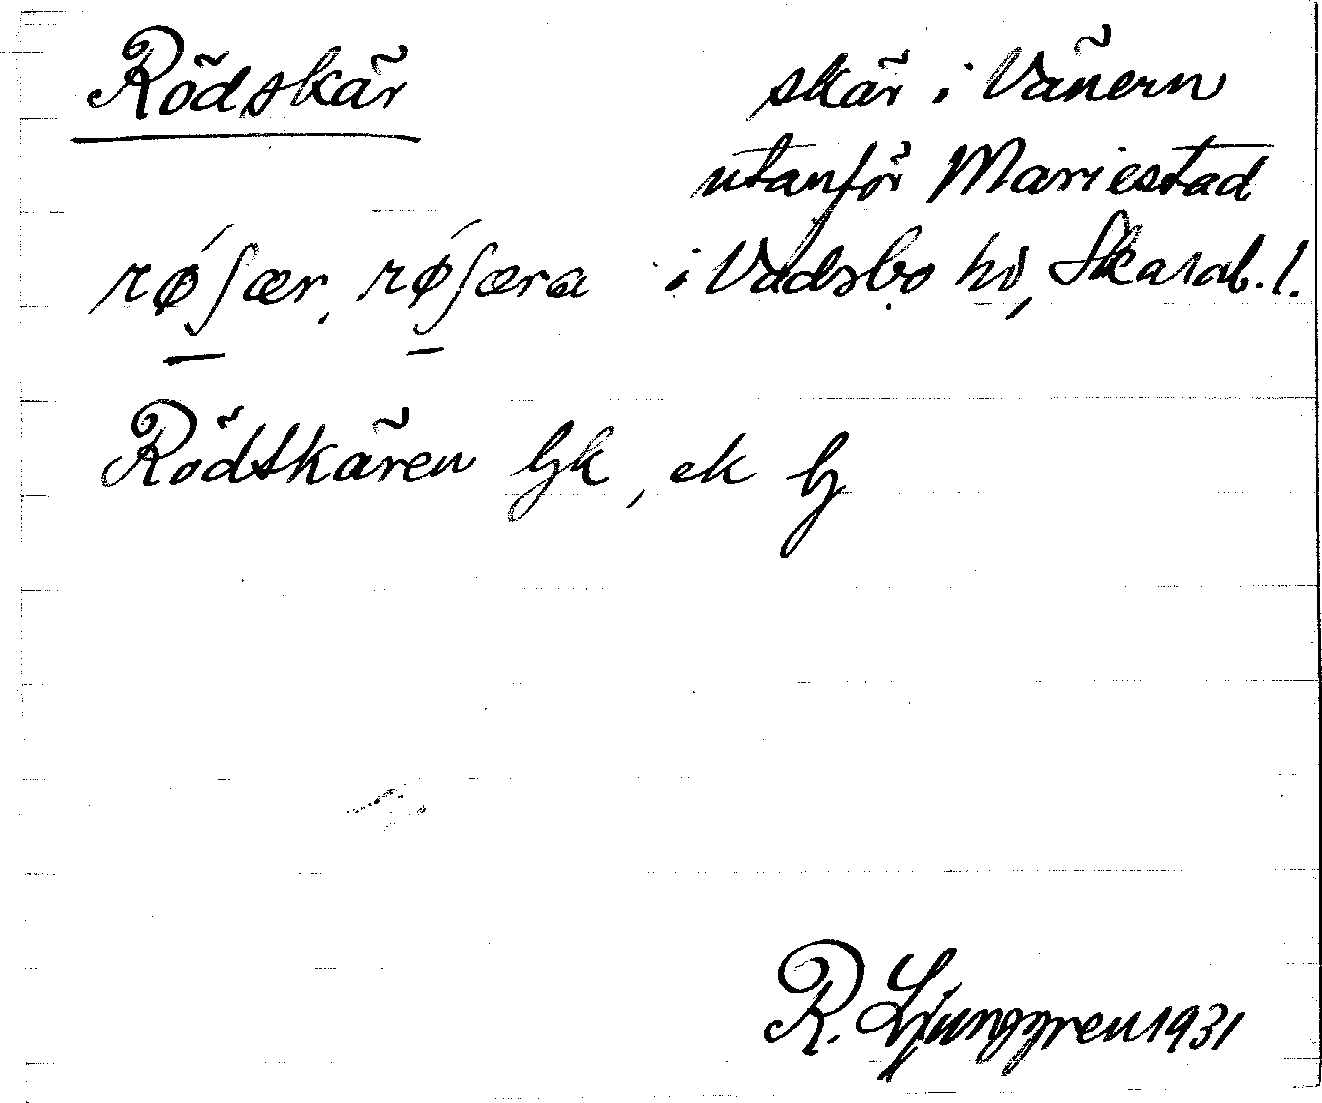 Rödskär
skär i Vänern
utanför Mariestad
i Vadsbo hd, Skarab. l.
røʃær, røʃæra
Rödskären Gk, ek G
R. Ljunggren 1931